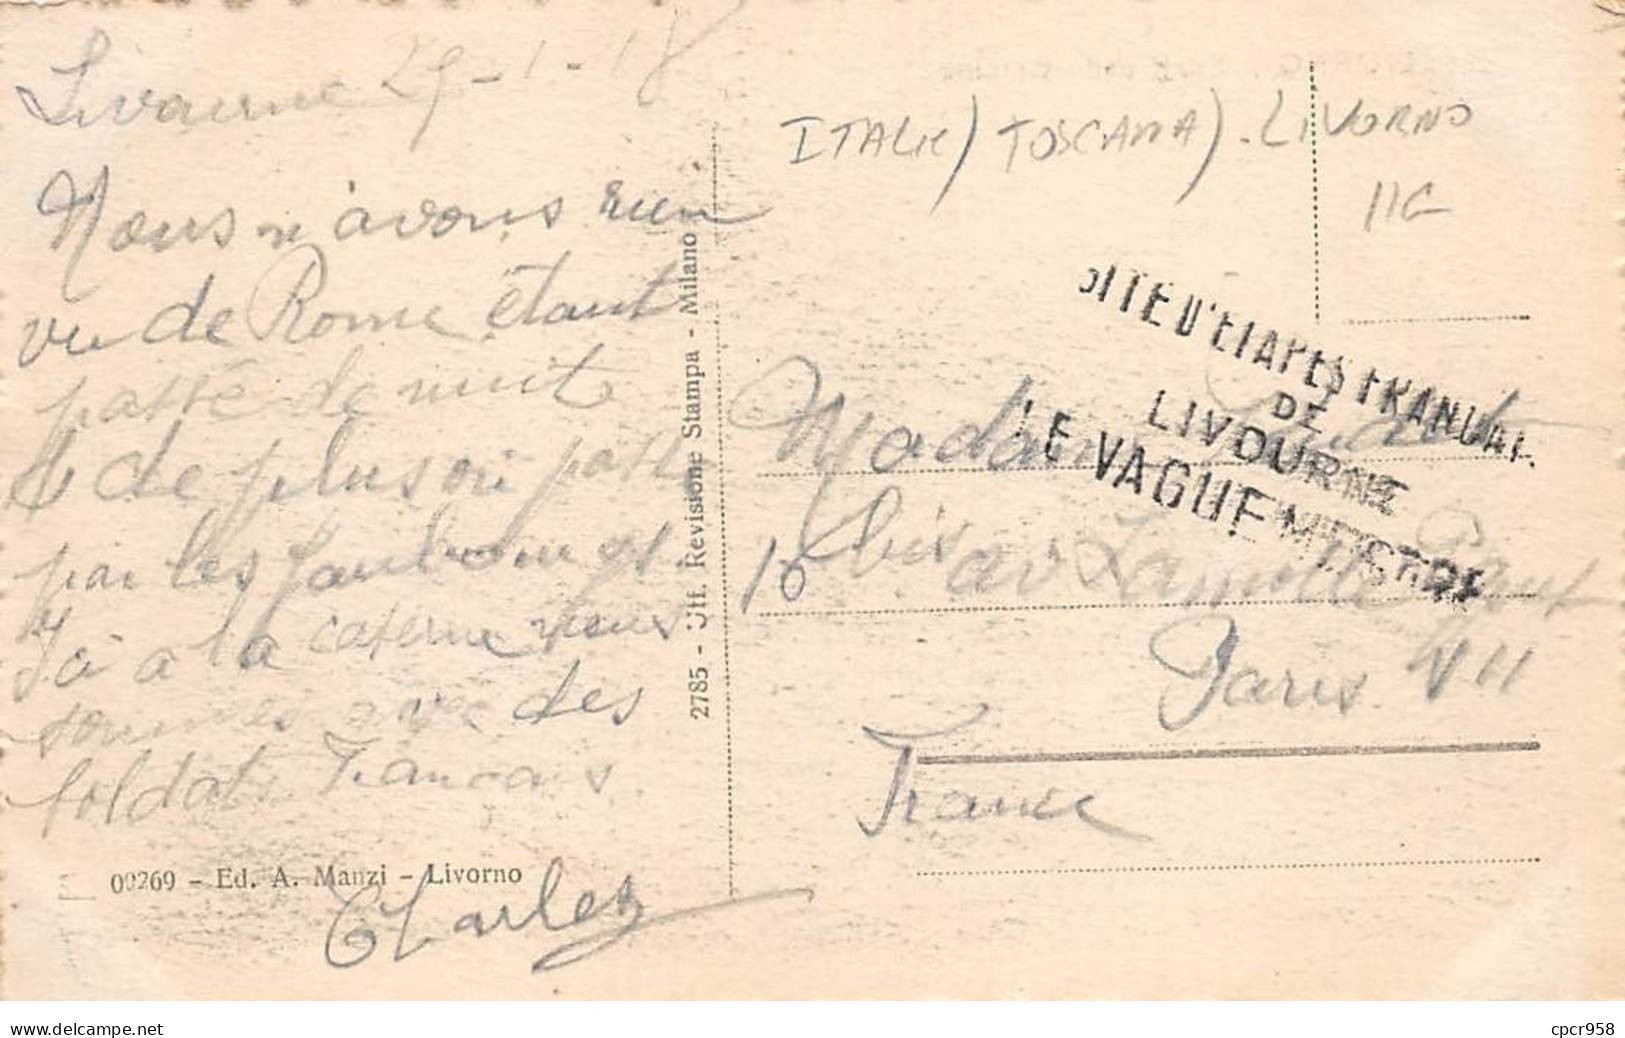 Livourne 29-1-18
Nous n'avons rien
vu de Rome étant
passé de nuit
& de plus on passe
par les faubourgs
Ici à la caserne nous
sommes avec des
soldats Français
Charles
00269 - Ed. A. Manzi - Livorno
2785 - Uff. Revisione Stampa - Milano
ITALIE) TOSCANA). LIVORNO
11C
GITE D'ETAPES FRANÇAI
DE
LIVOURNE
LE VAGUEMESTRE
Madame
10 bis av Lamotte
Paris VII
France
delcampe.net
cpcr958